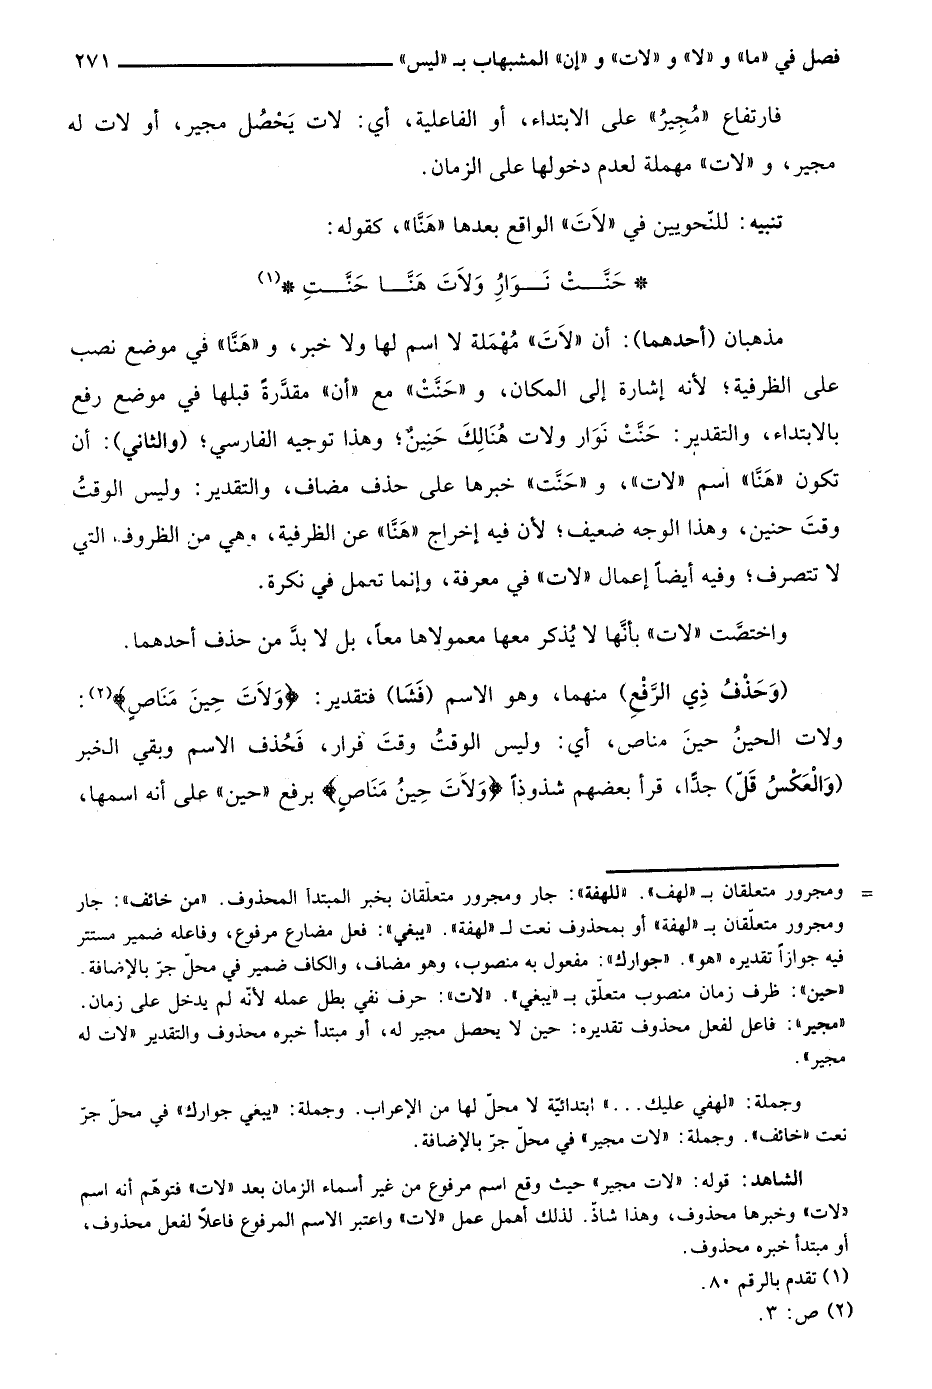 فصل في «ما» و «لا» و «لات» و «إن» المشبهاب بـ «ليس» ٢٧١
فارتفاع «مُجِيرُ» على الابتداء، أو الفاعلية، أي: لات يَحْصُل مجير، أو لات له
مجير، و «لات» مهملة لعدم دخولها على الزمان.
تنبيه: للنّحويين في «لاَتَ» الواقع بعدها «هَنَّا»، كقوله:
* حَنَّتْ نَوَارُ وَلاَتَ هَنَّا حَنَّتِ *(١)
مذهبان (أحدهما): أن «لاَتَ» مُهْمَلة لا اسم لها ولا خبر، و «هَنَّا» في موضع نصب
على الظرفية؛ لأنه إشارة إلى المكان، و «حَنَّتْ» مع «أن» مقدَّرةً قبلها في موضع رفع
بالابتداء، والتقدير: حَنَّتْ نَوَار ولات هُنَالِكَ حَنِينٌ؛ وهذا توجيه الفارسي؛ (والثاني): أن
تكون «هَنَّا» اسم «لات»، و «حَنَّت» خبرها على حذف مضاف، والتقدير: وليس الوقتُ
وقتَ حنين، وهذا الوجه ضعيف؛ لأن فيه إخراج «هَنَّا» عن الظرفية، وهي من الظروف التي
لا تتصرف؛ وفيه أيضاً إعمال «لات» في معرفة، وإنما تعمل في نكرة.
واختصَّت «لات» بأنَّها لا يُذكر معها معمولاها معاً، بل لا بدَّ من حذف أحدهما.
(وَحَذْفُ ذِي الرَّفْعِ) منهما، وهو الاسم (فَشَا) فتقدير: ﴿وَلاَتَ حِينَ مَنَاصٍ﴾(٢):
ولات الحينُ حينَ مناص، أي: وليس الوقتُ وقتَ فرار، فَحُذف الاسم وبقي الخبر
(وَالْعَكْسُ قَلّ) جدًّا، قرأ بعضهم شذوذاً ﴿وَلاَتَ حِينُ مَنَاصٍ﴾ برفع «حين» على أنه اسمها،
= ومجرور متعلقان بـ «لهف». «للهفة»: جار ومجرور متعلّقان بخبر المبتدأ المحذوف. «من خائف»: جار
ومجرور متعلّقان بـ «لهفة» أو بمحذوف نعت لـ «لهفة». «يبغي»: فعل مضارع مرفوع، وفاعله ضمير مستتر
فيه جوازاً تقديره «هو». «جوارك»: مفعول به منصوب، وهو مضاف، والكاف ضمير في محلّ جرّ بالإضافة.
«حين»: ظرف زمان منصوب متعلّق بـ «يبغي». «لات»: حرف نفي بطل عمله لأنّه لم يدخل على زمان.
«مجير»: فاعل لفعل محذوف تقديره: حين لا يحصل مجير له، أو مبتدأ خبره محذوف والتقدير «لات له
مجير».
وجملة: «لهفي عليك...» ابتدائيّة لا محلّ لها من الإعراب. وجملة: «يبغي جوارك» في محلّ جرّ
نعت «خائف». وجملة: «لات مجير» في محلّ جرّ بالإضافة.
الشاهد: قوله: «لات مجير» حيث وقع اسم مرفوع من غير أسماء الزمان بعد «لات» فتوهّم أنه اسم
«لات» وخبرها محذوف، وهذا شاذّ. لذلك أهمل عمل «لات» واعتبر الاسم المرفوع فاعلاً لفعل محذوف،
أو مبتدأ خبره محذوف.
(١) تقدم بالرقم ٨٠.
(٢) ص: ٣.